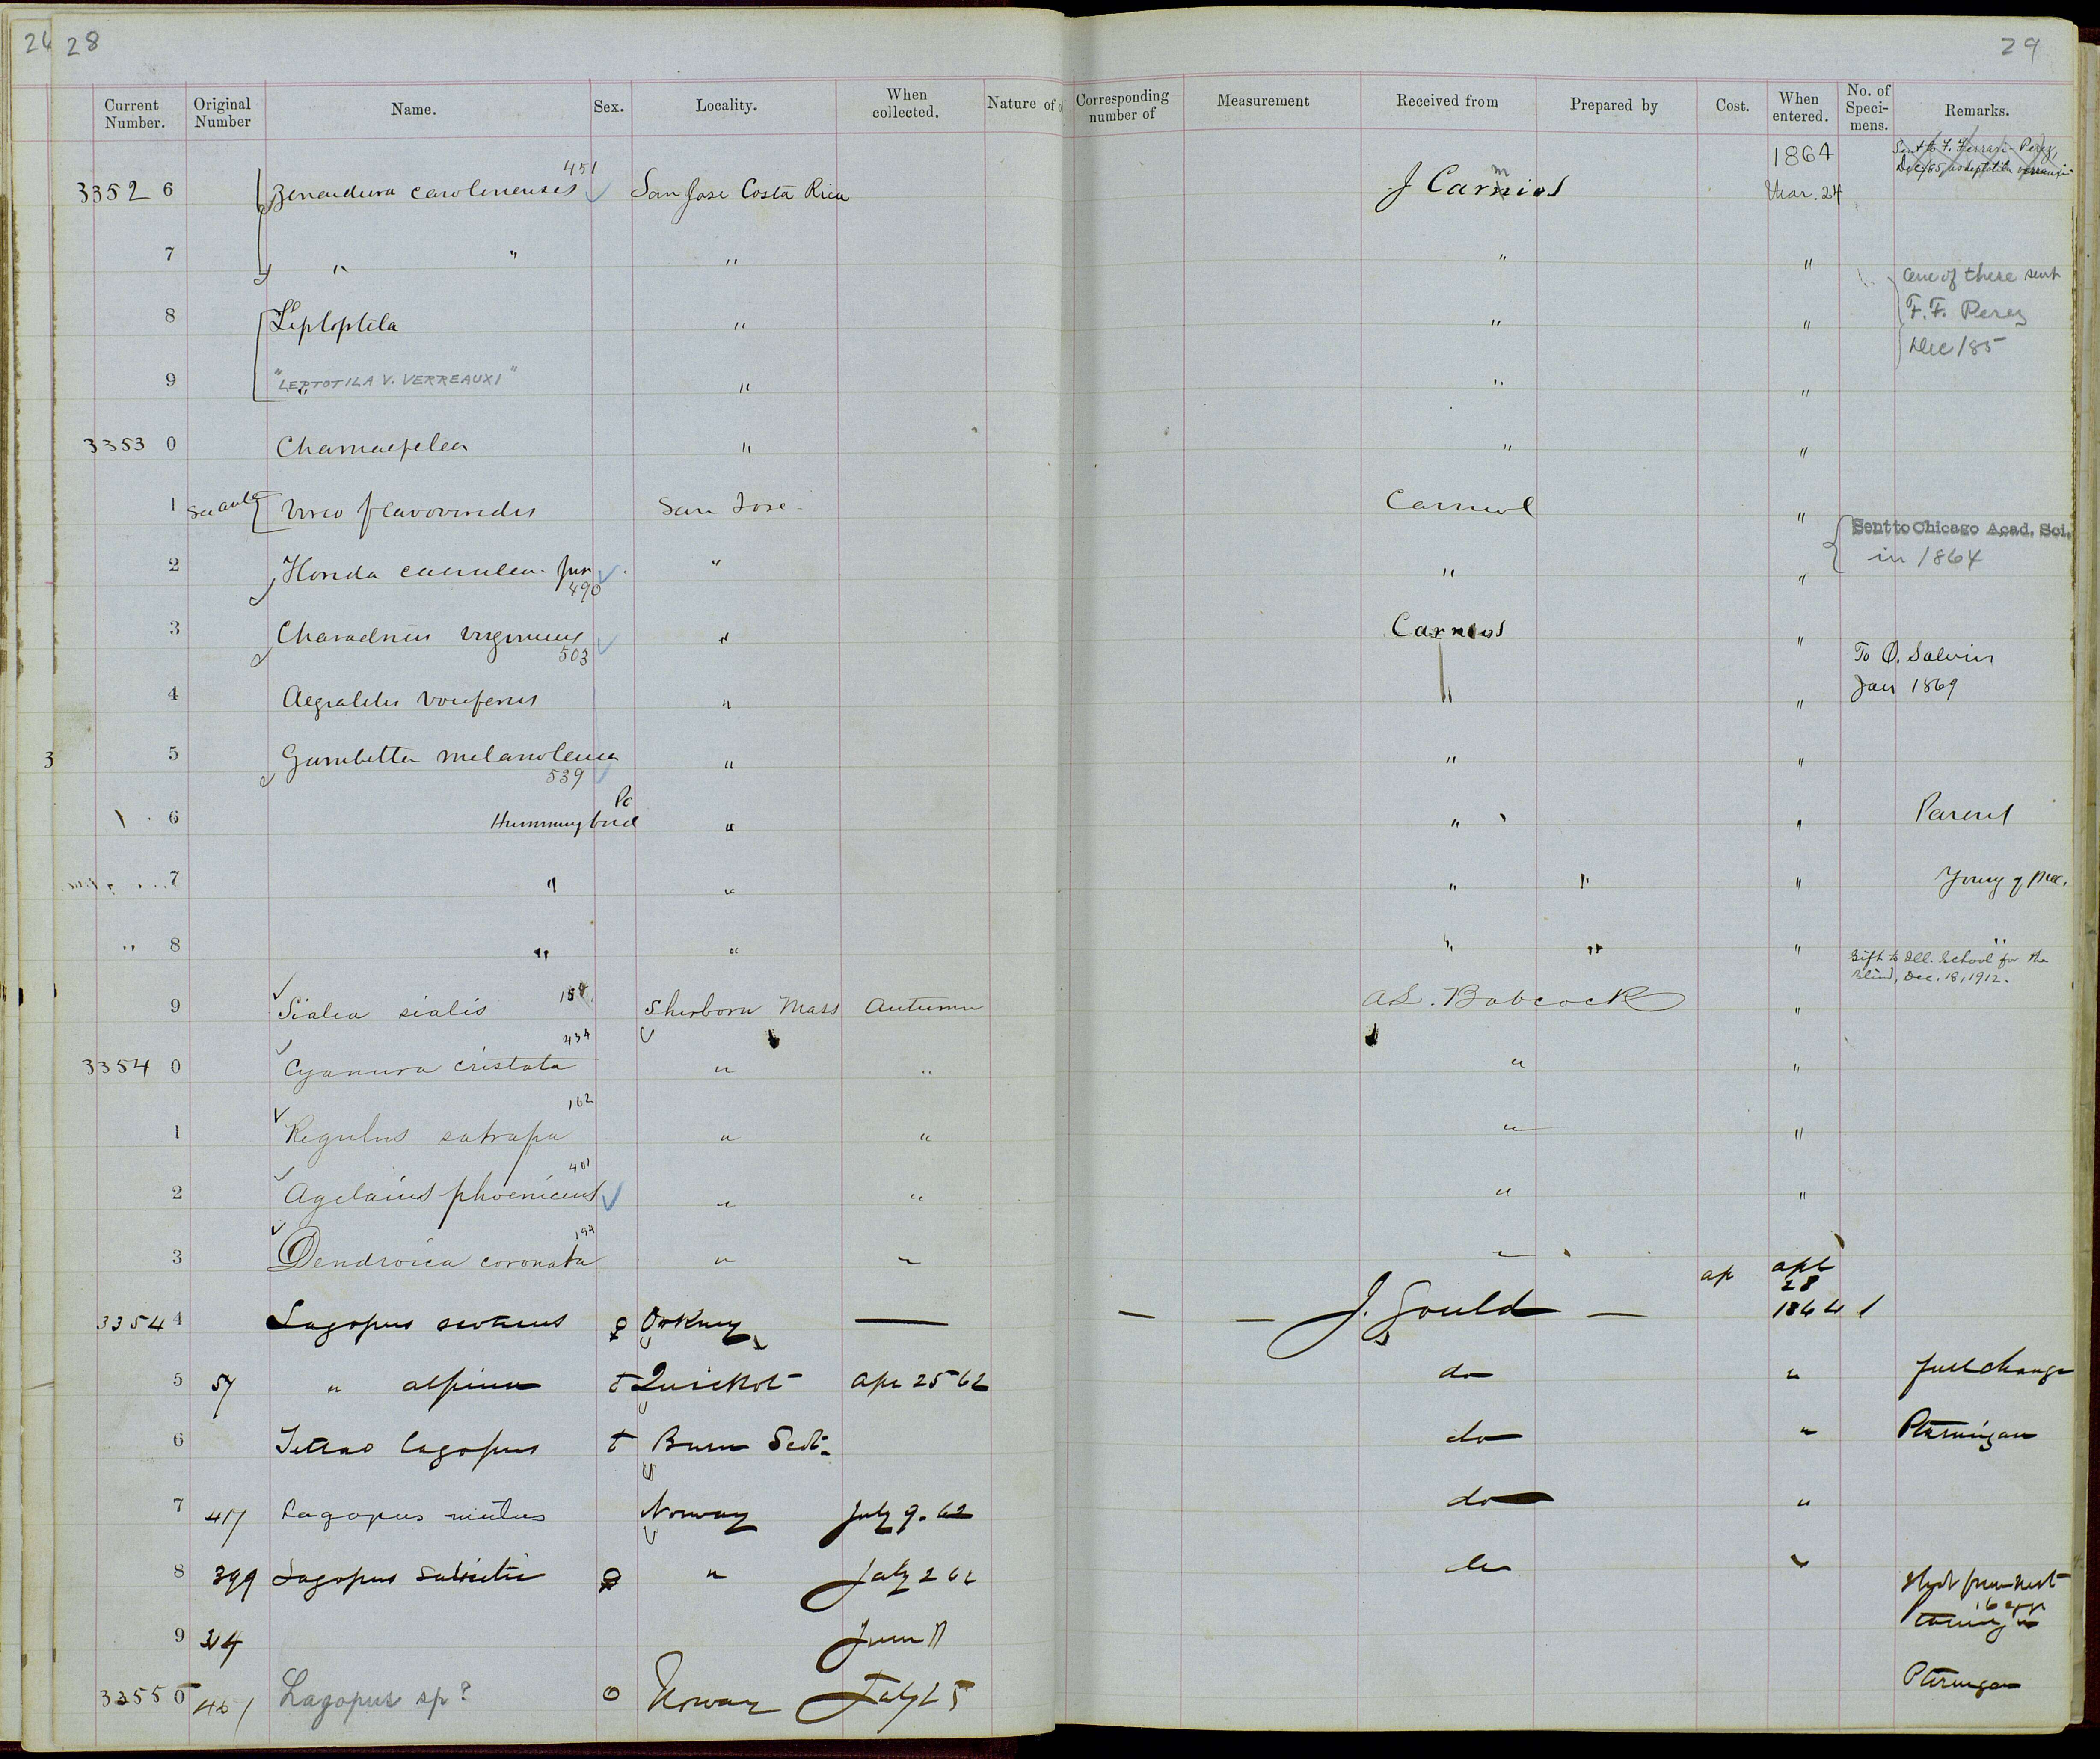 26 28
29
Current Number. Original Number Name. Sex. Locality. When collected. Nature of Corresponding number of Measurement Received from Prepared by Cost. When entered. No. of Speci- mens. Remarks.
Sent to F. Ferrari-Perez,
Dec/85, as Leptotila verreauxi
451
1864
3352 6 Zenaidura carolinensis San Jose Costa Rica J Carmiol Mar. 24
7 " " " " "
One of these sent
8 Leptoptila " " "
F. F. Perez
Dec/85
9 "LEPTOTILA V. VERREAUXI" " " "
3353 0 Chamaepelea " " "
1 See ante Vireo flavoviridis San Jose Carmiol "
Sent to Chicago Acad. Sci.
in 1864
2 Florida caerulea Juv " " "
490
3 Charadrius virginicus " Carniol "
503
To O. Salvin
Jan 1869
4 Aegialitis vociferus " " "
5 3 Gambetta melanoleuca " " "
539
6 Hummingbird " " " Parent
7 " " " " " Young of prec.
8 " " " " " "
Gift to Ill. School for the
Blind, Dec. 18, 1912.
9 Sialia sialis 158 Sherborn Mass Autumn A.L. Babcock "
434
3354 0 Cyanura cristata " " " "
162
1 Regulus satrapa " " " "
401
2 Agelaius phoeniceus " " " "
194
3 Dendroica coronata " " "
ap apl
28
3354 4 Lagopus scoticus ♀ Orkney — — — J. Gould — 1864 1
5 57 " alpina Quickjok Apr 25 62 do " full change
6 Tetrao lagopus Scot. do " Ptarmigan
7 417 Lagopus mutus Norway July 9. 62 do "
8 399 Lagopus ♀ " July 2 62 do "
Shot from nest
9 314 June 11
3355 0 Lagopus sp? Norway July Ptarmigan